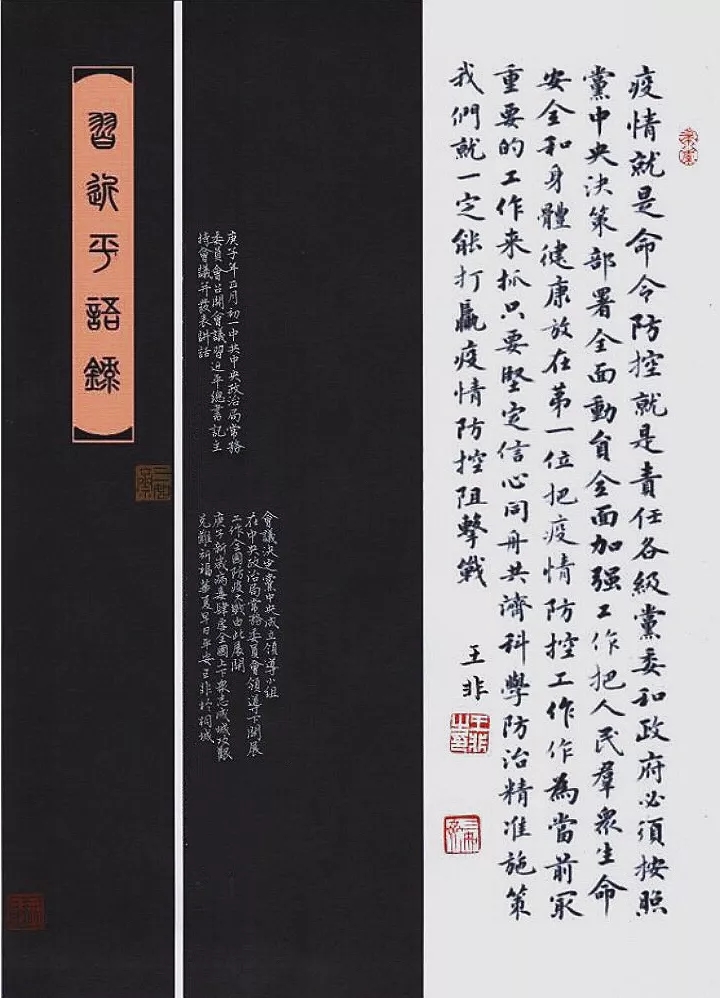 疫情就是命令防控就是責任各級黨委和政府必須按照
黨中央決策部署全面動員全面加强工作把人民羣眾生命
安全和身體健康放在第一位把疫情防控工作作為當前最
重要的工作來抓只要堅定信心同舟共濟科學防治精准施策
我們就一定能打贏疫情防控阻擊戰
王非
庚子年正月初一中共中央政治局常務
委員會召開會議習近平總書記主
持會議并發表講話
會議決定黨中央成立領導小組
在中央政治局常務委員會領導下開展
工作全國防疫之戰由此展開
庚子新病毒肆虐全國上下衆志成城攻艱
克難祈福華夏早日平安王非於桐城
習近平語錄